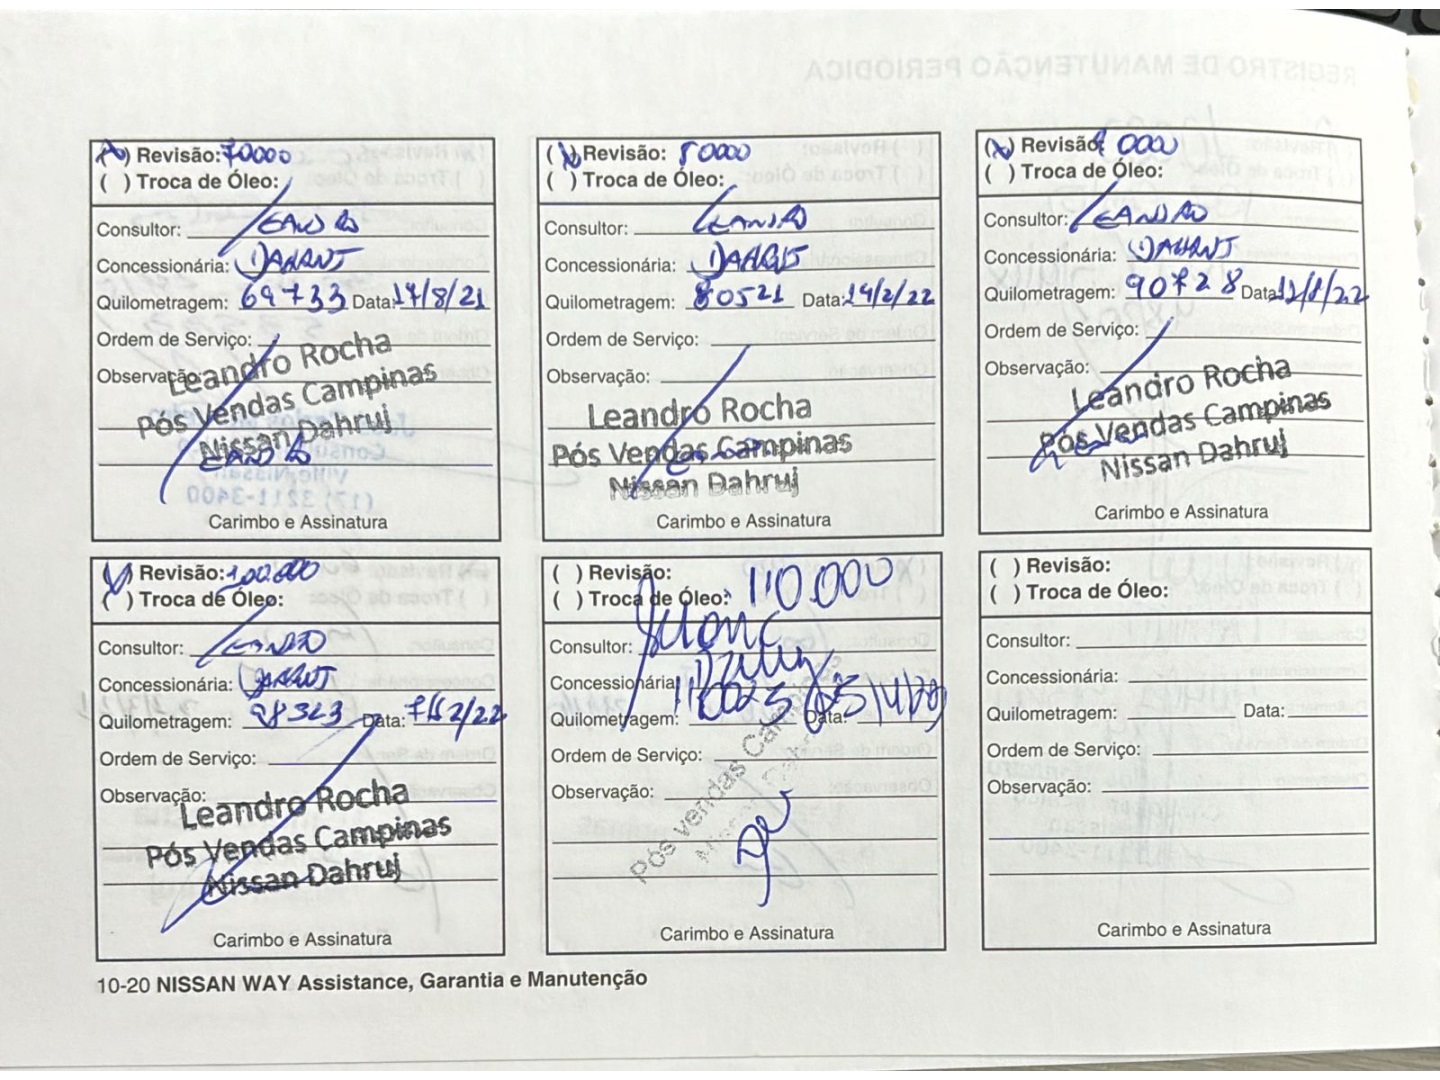 (X) Revisão: 70000
( ) Troca de Óleo:
Consultor: LEANDRO
Concessionária: DAHRUJ
Quilometragem: 69733 Data: 17/8/21
Ordem de Serviço:
Observação:
Leandro Rocha
Pós Vendas Campinas
Nissan Dahruj
Carimbo e Assinatura
(X) Revisão: 80000
( ) Troca de Óleo:
Consultor: LEANDRO
Concessionária: DAHRUJ
Quilometragem: 80521 Data: 14/2/22
Ordem de Serviço:
Observação:
Leandro Rocha
Pós Vendas Campinas
Nissan Dahruj
Carimbo e Assinatura
(X) Revisão: 90000
( ) Troca de Óleo:
Consultor: LEANDRO
Concessionária: DAHRUJ
Quilometragem: 90728 Data:
Ordem de Serviço:
Observação:
Leandro Rocha
Pós Vendas Campinas
Nissan Dahruj
Carimbo e Assinatura
(X) Revisão: 100.000
( ) Troca de Óleo:
Consultor: LEANDRO
Concessionária: DAHRUJ
Quilometragem: 98323 Data:
Ordem de Serviço:
Observação:
Leandro Rocha
Pós Vendas Campinas
Nissan Dahruj
Carimbo e Assinatura
( ) Revisão:
( ) Troca de Óleo: 110.000
Consultor:
Concessionária:
Quilometragem: Data:
Ordem de Serviço:
Observação:
Pós Vendas Campinas
Carimbo e Assinatura
( ) Revisão:
( ) Troca de Óleo:
Consultor:
Concessionária:
Quilometragem: Data:
Ordem de Serviço:
Observação:
Carimbo e Assinatura
10-20 NISSAN WAY Assistance, Garantia e Manutenção